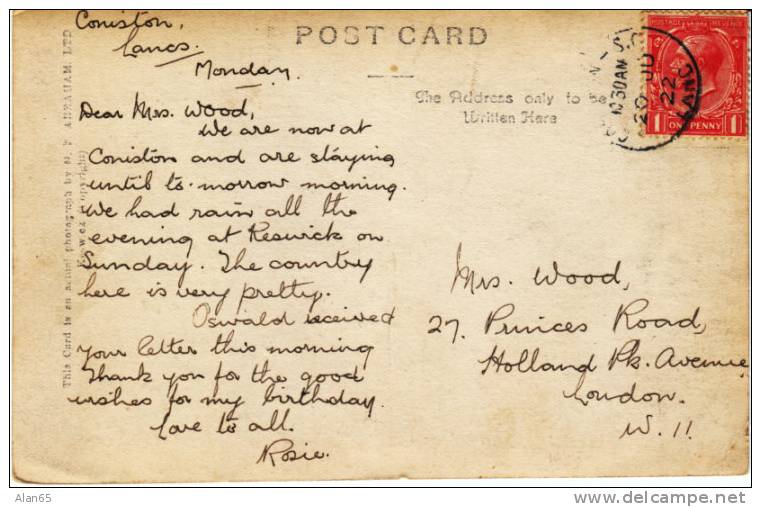 Coniston,
Lancs.
Monday.
Dear Mrs. Wood,
We are now at
Coniston and are staying
until to-morrow morning.
We had rain all the
evening at Keswick on
Sunday. The country
here is very pretty.
Oswald received
your letter this morning
Thank you for the good
wishes for my birthday.
Love to all.
Rosie.
POST CARD
The Address only to be
Written Here
POSTAGE REVENUE
ONE PENNY
1 1
10 30AM
20
22
LANC
Mrs. Wood,
27, Princes Road,
Holland Pk. Avenue,
London.
W. 11.
This Card is an actual photograph by G. P. ABRAHAM, LTD
Keswick (Copyright)
Alan65
www.delcampe.net